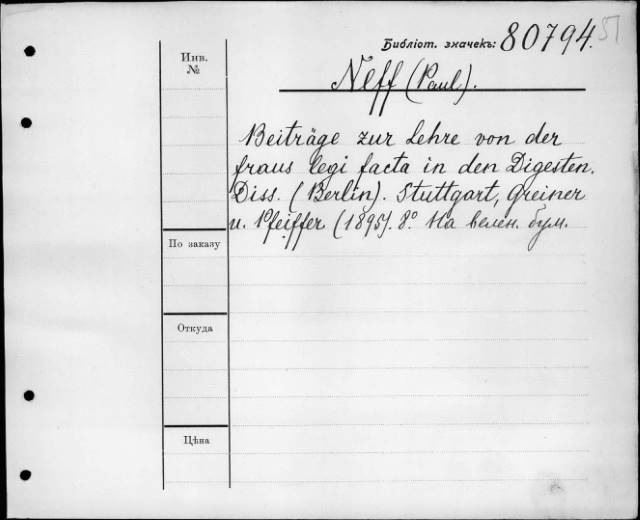 Библіот. значекъ: 80794.
Инв.
№
Neff (Paul).
Beiträge zur Lehre von der
fraus legi facta in den Digesten.
Diss. (Berlin). Stuttgart, Greiner
u. Pfeiffer (1895). 8.° На велен. бум.
По заказу
Откуда
Цѣна